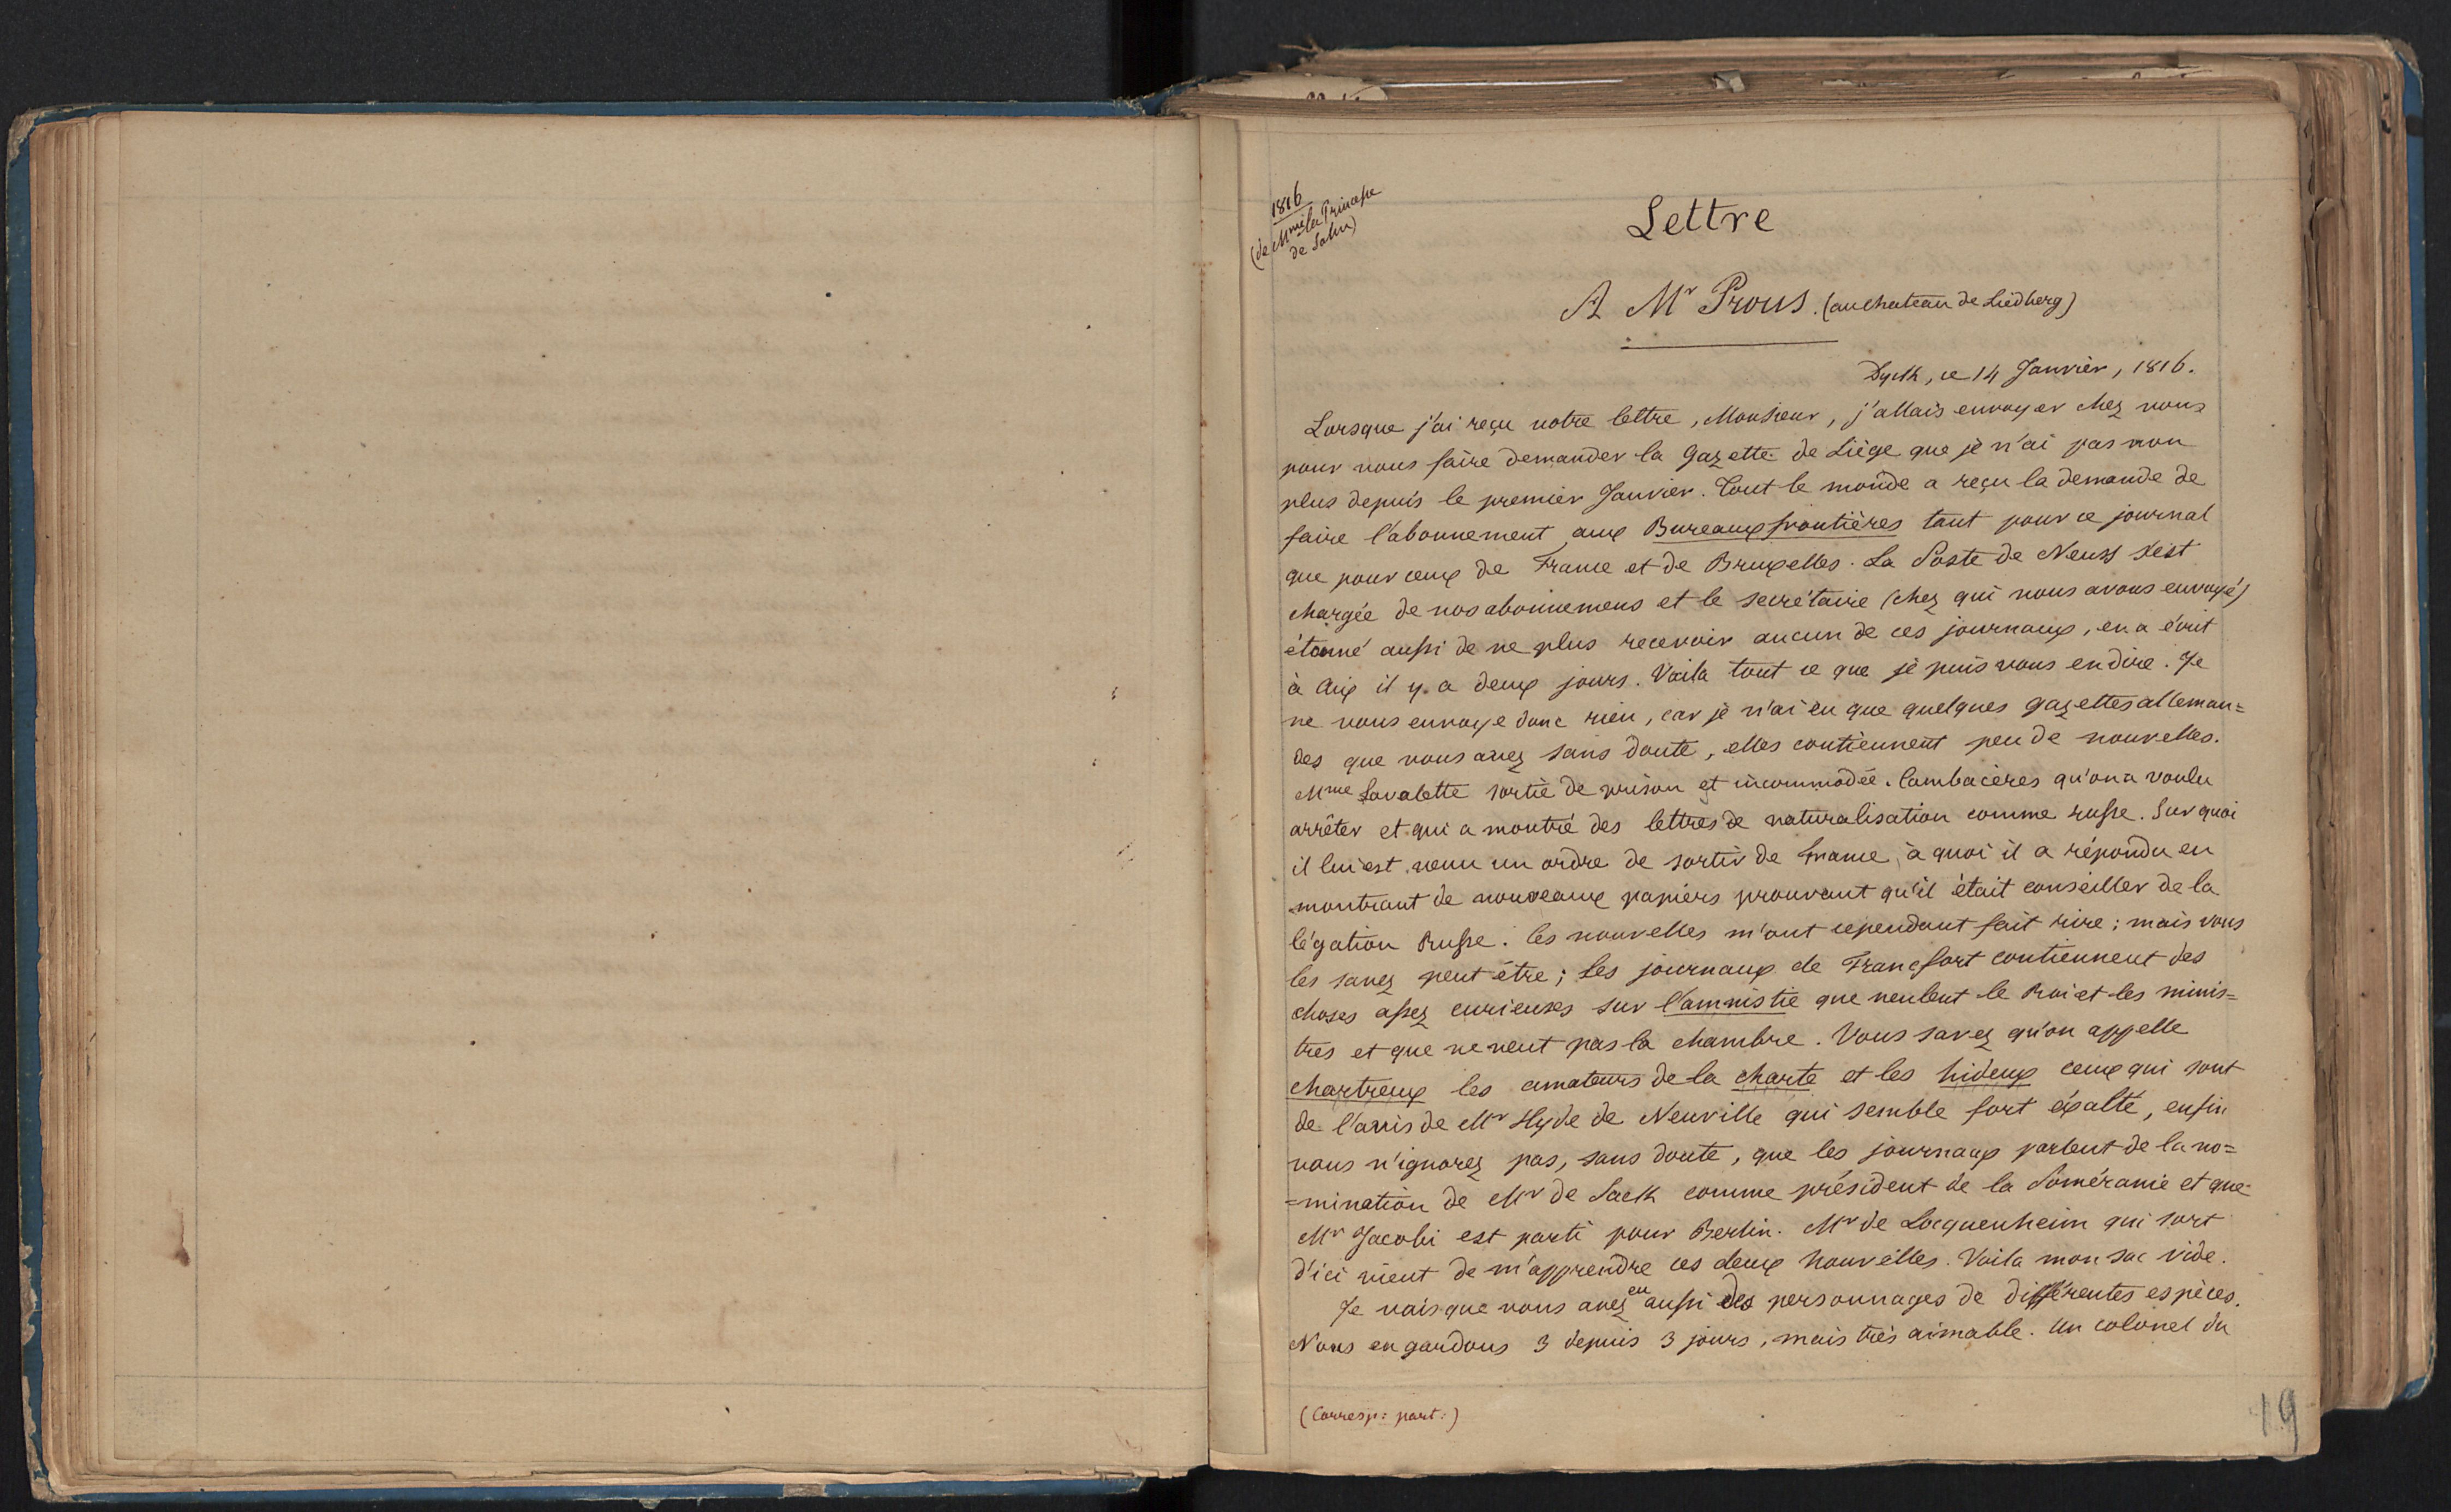 1816
(de Mme la Princesse
de Salm)
Lettre
A Mr Prous. (au chateau de Liedberg)
Dyck, ce 14 Janvier, 1816.
Lorsque j'ai reçu votre lettre, Monsieur, j'allais envoyer chez vous
pour vous faire demander la Gazette de Liège que je n'ai pas non
plus depuis le premier Janvier. Tout le monde a reçu la demande de
faire l'abonnement aux Bureaux frontières tant pour ce journal
que pour ceux de France et de Bruxelles. La Poste de Neuss s'est
chargée de nos abonnemens et le secrétaire (chez qui nous avons envoyé)
étonné aussi de ne plus recevoir aucun de ces journaux, en a écrit
à Aix il y a deux jours. Voila tout ce que je puis vous en dire. Je
ne vous envoye donc rien, car je n'ai eu que quelques gazettes alleman=
des que vous avez sans doute, elles contiennent peu de nouvelles.
Mme Lavalette sortie de prison et incommodée. Cambacères qu'on a voulu
arrêter et qui a montré des lettres de naturalisation comme russe. Sur quoi
il lui est venu un ordre de sortir de France, à quoi il a répondu en
montrant de nouveaux papiers prouvant qu'il était conseiller de la
légation Russe. Ces nouvelles m'ont cependant fait rire; mais vous
les savez peut être; Les journaux de Francfort contiennent des
choses assez curieuses sur l'amnistie que veulent le Roi et les minis=
tres et que ne veut pas la chambre. Vous savez qu'on appelle
chartreux les amateurs de la charte et les hideux ceux qui sont
de l'avis de Mr Hyde de Neuville qui semble fort éxalté, enfin
vous n'ignorez pas, sans doute, que les journaux parlent de la no=
=mination de Mr de Sack comme président de la Poméranie et que
Mr Jacobi est parti pour Berlin. Mr de Locquenheim qui sort
d'ici vient de m'apprendre ces deux nouvelles. Voila mon sac vide.
Je vois que vous avez eu aussi des personnages de différentes espèces.
Nous en gardons 3 depuis 3 jours, mais très aimable. Un colonel du
(Corresp: part:)
19